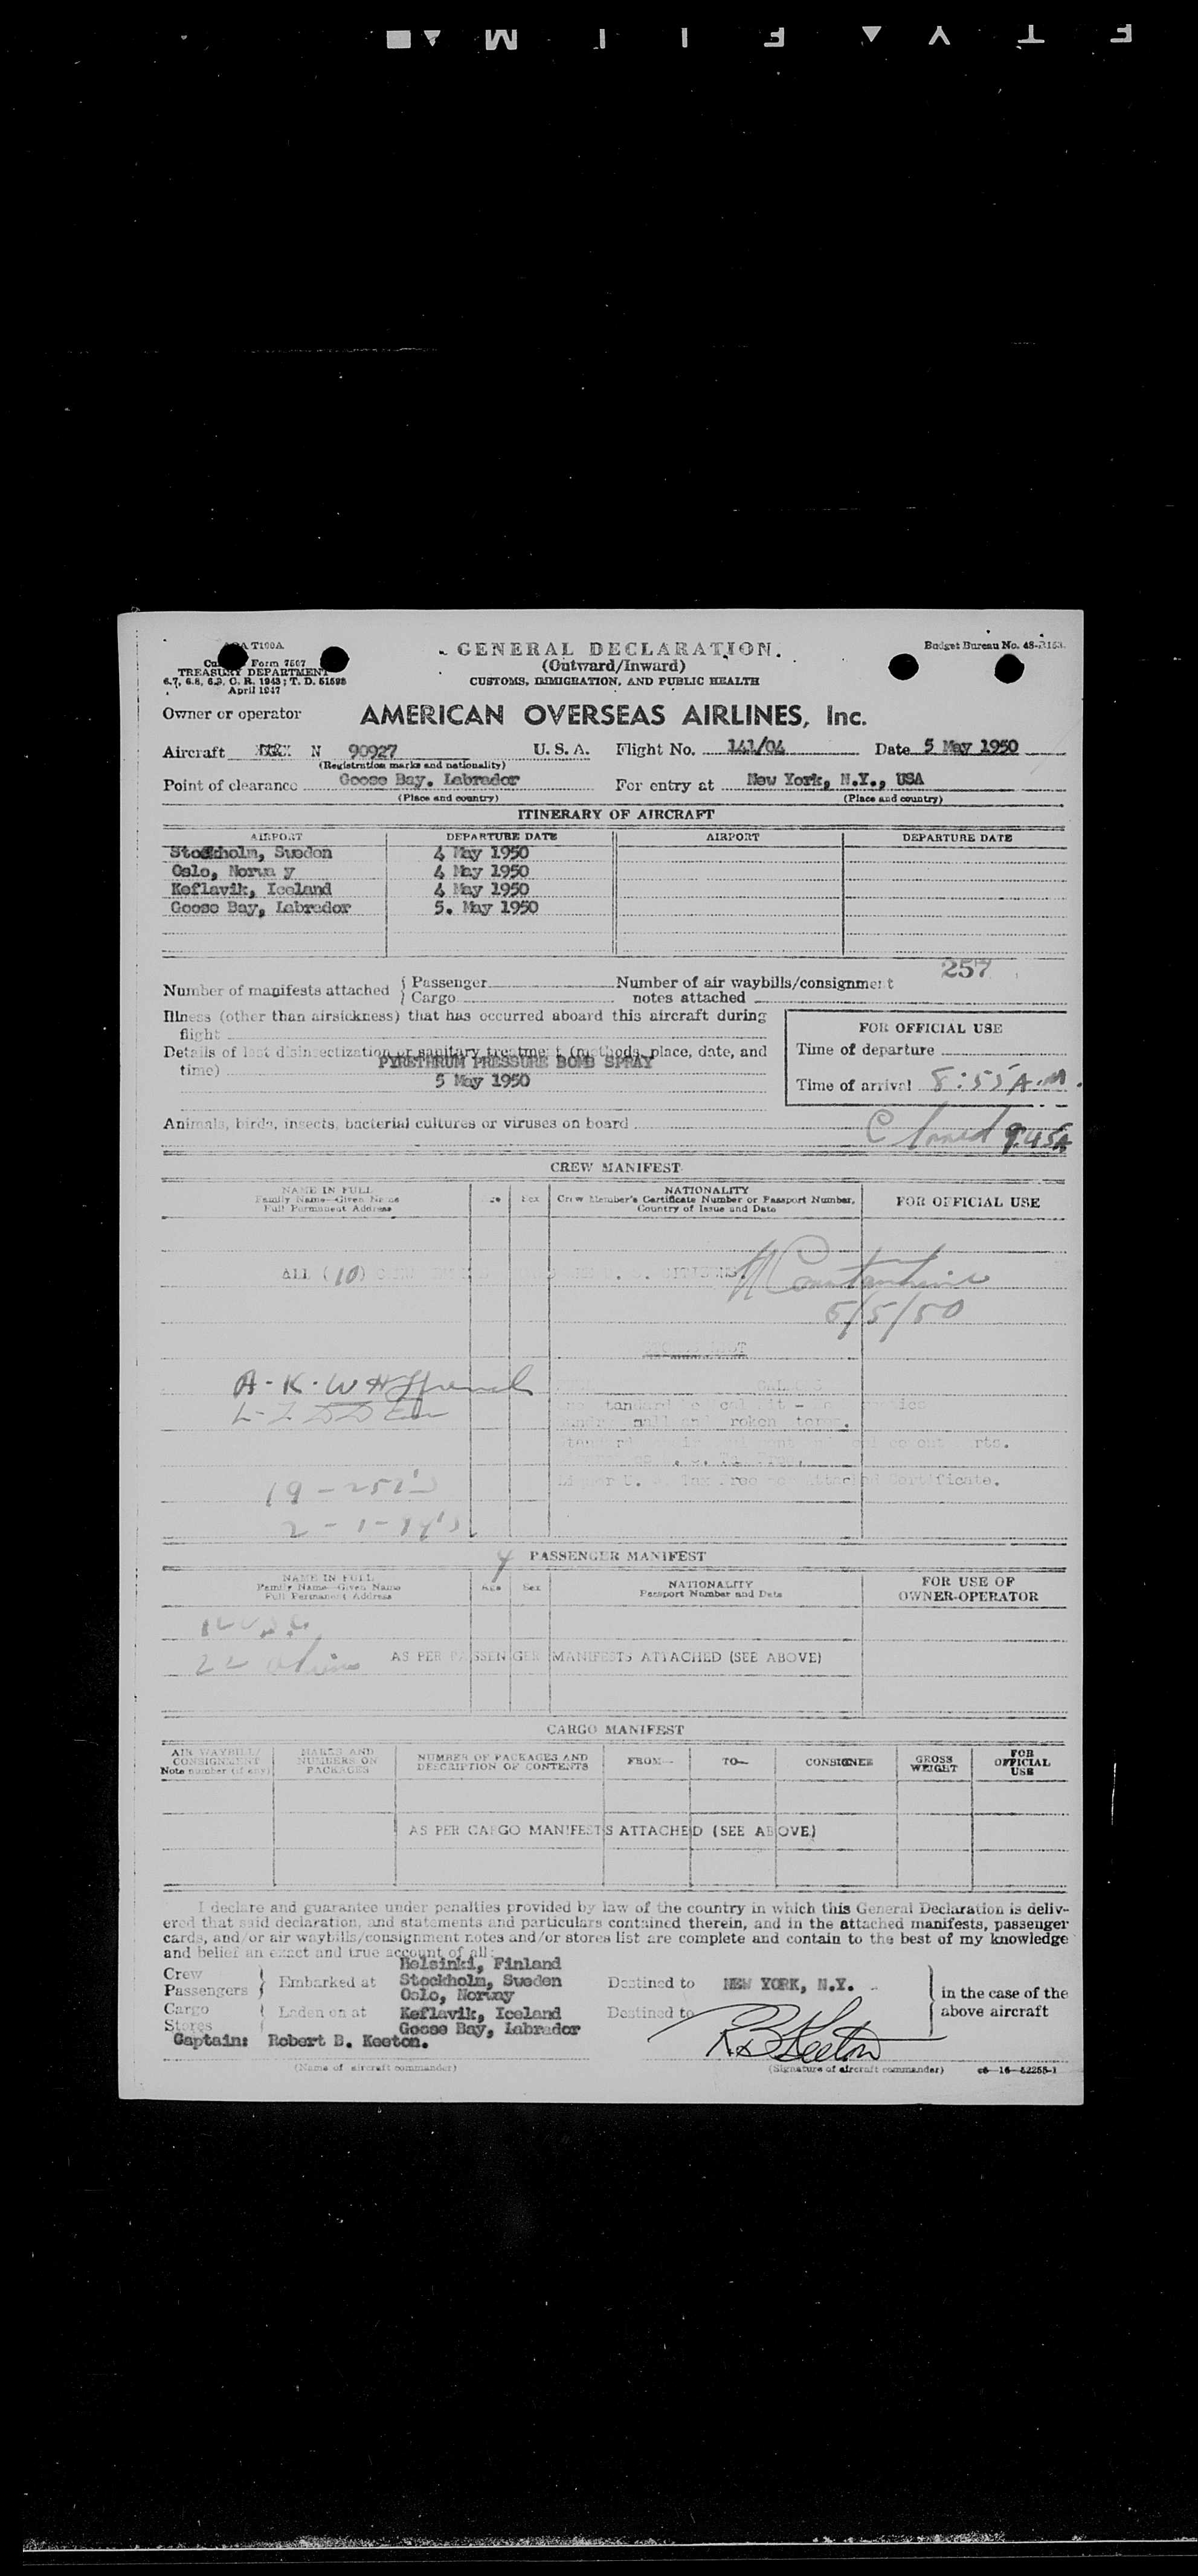 GENERAL DECLARATION.
(Outward/Inward)
CUSTOMS, IMMIGRATION, AND PUBLIC HEALTH
T100A
Form 7507
TREASURY DEPARTMENT
6.7, 6.8, 6.9, C. R. 1943; T. D. 51595
April 1947
Budget Bureau No. 48-R153.
Owner or operator AMERICAN OVERSEAS AIRLINES, Inc.
Aircraft N 90927 U. S. A. Flight No. 141/04 Date 5 May 1950
(Registration marks and nationality)
Point of clearance Goose Bay. Labrador For entry at New York, N.Y., USA
(Place and country) (Place and country)
ITINERARY OF AIRCRAFT
AIRPORT DEPARTURE DATE AIRPORT DEPARTURE DATE
Stockholm, Sweden 4 May 1950
Oslo, Norwa y 4 May 1950
Keflavik, Iceland 4 May 1950
Goose Bay, Labrador 5. May 1950
257
Number of manifests attached { Passenger Number of air waybills/consignment
Cargo notes attached
Illness (other than airsickness) that has occurred aboard this aircraft during
flight
Details of last disinsectization or sanitary treatment (methods, place, date, and
time) PYRETHRUM PRESSURE BOMB SPRAY
5 May 1950
FOR OFFICIAL USE
Time of departure
Time of arrival 8:55 A.M.
Animals, birds, insects, bacterial cultures or viruses on board
9:45A
CREW MANIFEST
NAME IN FULL
Family Name—Given Name
Full Permanent Address
Sex
NATIONALITY
Crew Member's Certificate Number or Passport Number,
Country of Issue and Date
FOR OFFICIAL USE
ALL (10) CITIZENS.
5/5/50
Liquor U. S. Tax Free Attached Certificate.
PASSENGER MANIFEST
NAME IN FULL
Family Name—Given Name
Full Permanent Address
Age Sex
NATIONALITY
Passport Number and Date
FOR USE OF
OWNER-OPERATOR
22 aliens
AS PER PASSENGER MANIFESTS ATTACHED (SEE ABOVE)
CARGO MANIFEST
AIR WAYBILL/
CONSIGNMENT
Note number (if any)
MARKS AND
NUMBERS ON
PACKAGES
NUMBER OF PACKAGES AND
DESCRIPTION OF CONTENTS
FROM— TO— CONSIGNEE
GROSS
WEIGHT
FOR
OFFICIAL
USE
AS PER CARGO MANIFESTS ATTACHED (SEE ABOVE)
I declare and guarantee under penalties provided by law of the country in which this General Declaration is deliv-
ered that said declaration, and statements and particulars contained therein, and in the attached manifests, passenger
cards, and/or air waybills/consignment notes and/or stores list are complete and contain to the best of my knowledge
and belief an exact and true account of all:
Helsinki, Finland
Crew
Passengers } Embarked at Stockholm, Sweden Destined to NEW YORK, N.Y.
Oslo, Norway
Cargo
Stores Laden on at Keflavik, Iceland Destined to
Goose Bay, Labrador
in the case of the
above aircraft
Captain: Robert B. Keeton. RB Keeton
(Name of aircraft commander) (Signature of aircraft commander) 16—52255-1